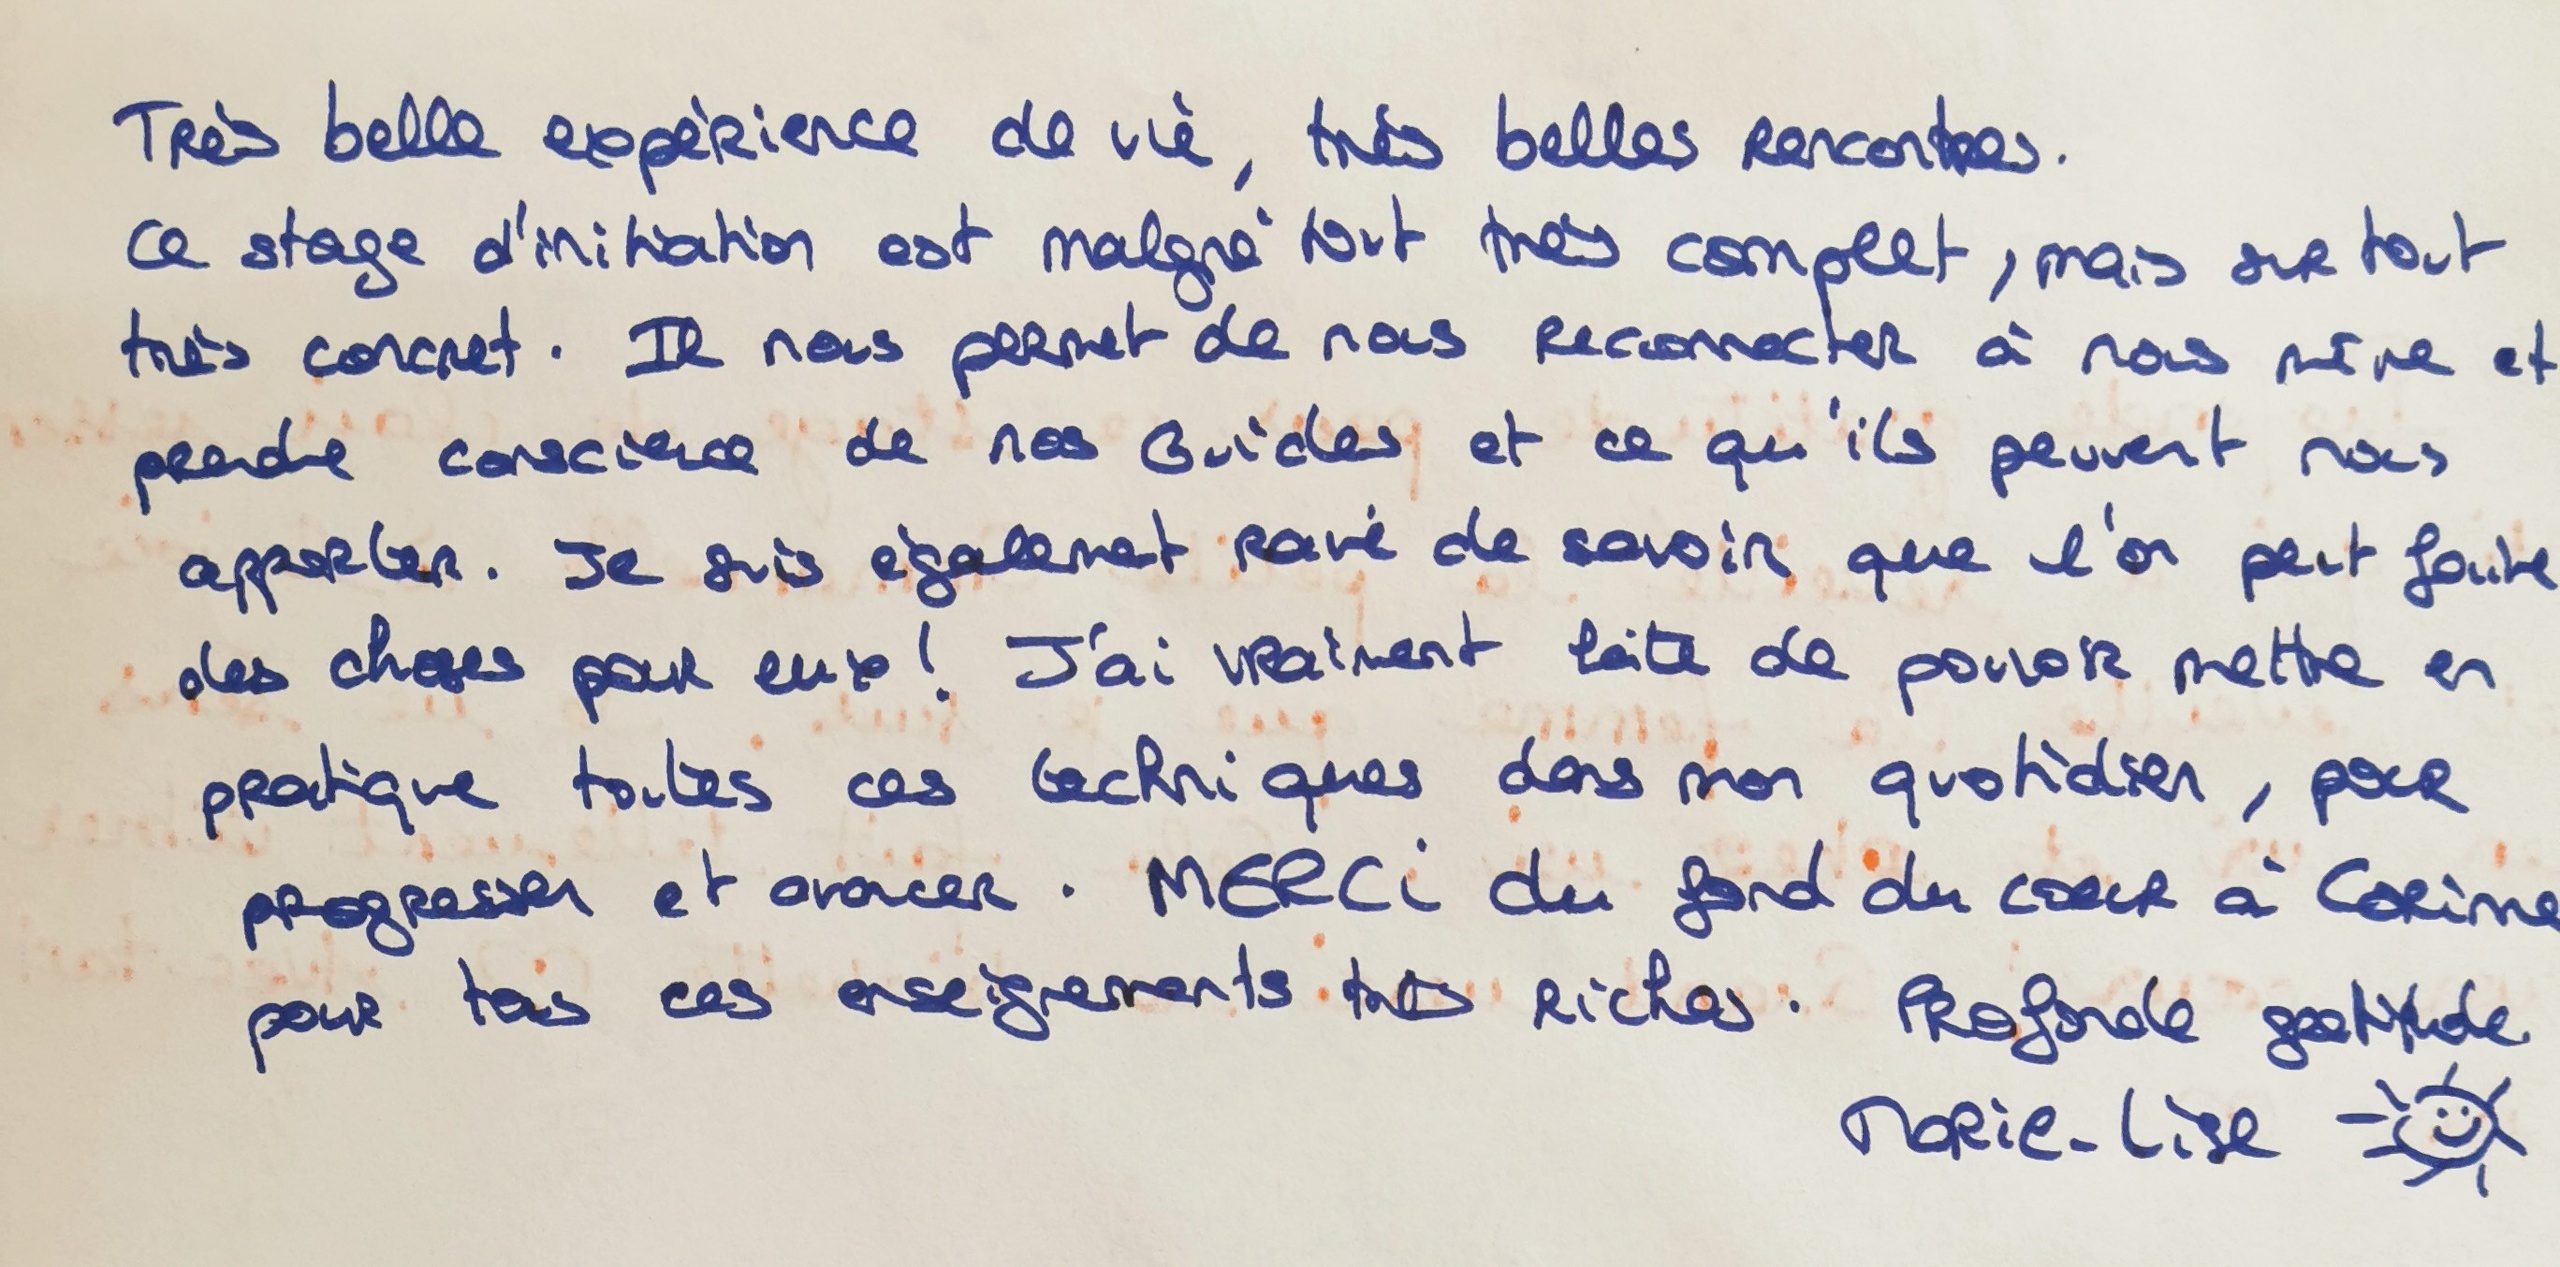 Très belle expérience de vie, très belles rencontres.
Ce stage d'initiation est malgré tout très complet, mais surtout
très concret. Il nous permet de nous reconnecter à nous même et
prendre conscience de nos Guides et ce qu'ils peuvent nous
apporter. Je suis également ravie de savoir que l'on peut faire
des choses pour eux ! J'ai vraiment hâte de pouvoir mettre en
pratique toutes ces techniques dans mon quotidien, pour
progresser et avancer. MERCi du fond du cœur à Corinne
pour tous ces enseignements très riches. Profonde gratitude
Marie-Lise